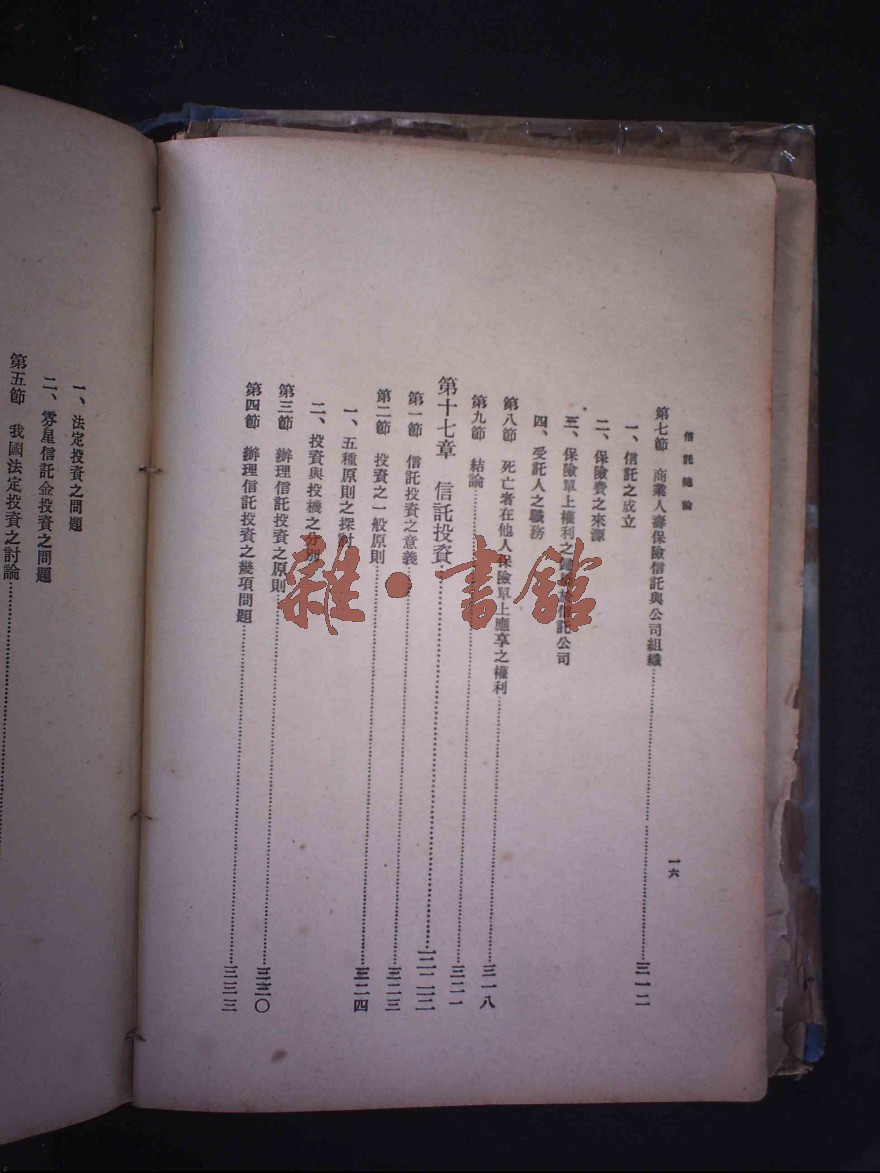 信託總論
一六
第七節 商業人壽保險信託與公司組織……三一二
一、信託之成立
二、保險費之來源
三、保險單上權利之信託公司
四、受託人之職務
第八節 死亡者在他人保險單上應享之權利……三一八
第九節 結論……三二一
第十七章 信託投資……三二二
第一節 信託投資之意義……三二三
第二節 投資之一般原則……三二四
一、五種原則之探討
二、投資與投機之分別
第三節 辦理信託投資之原則……三三〇
第四節 辦理信託投資之幾項問題……三三三
一、法定投資之問題
二、零星信託金投資之問題
第五節 我國法定投資之討論……
雜·書館